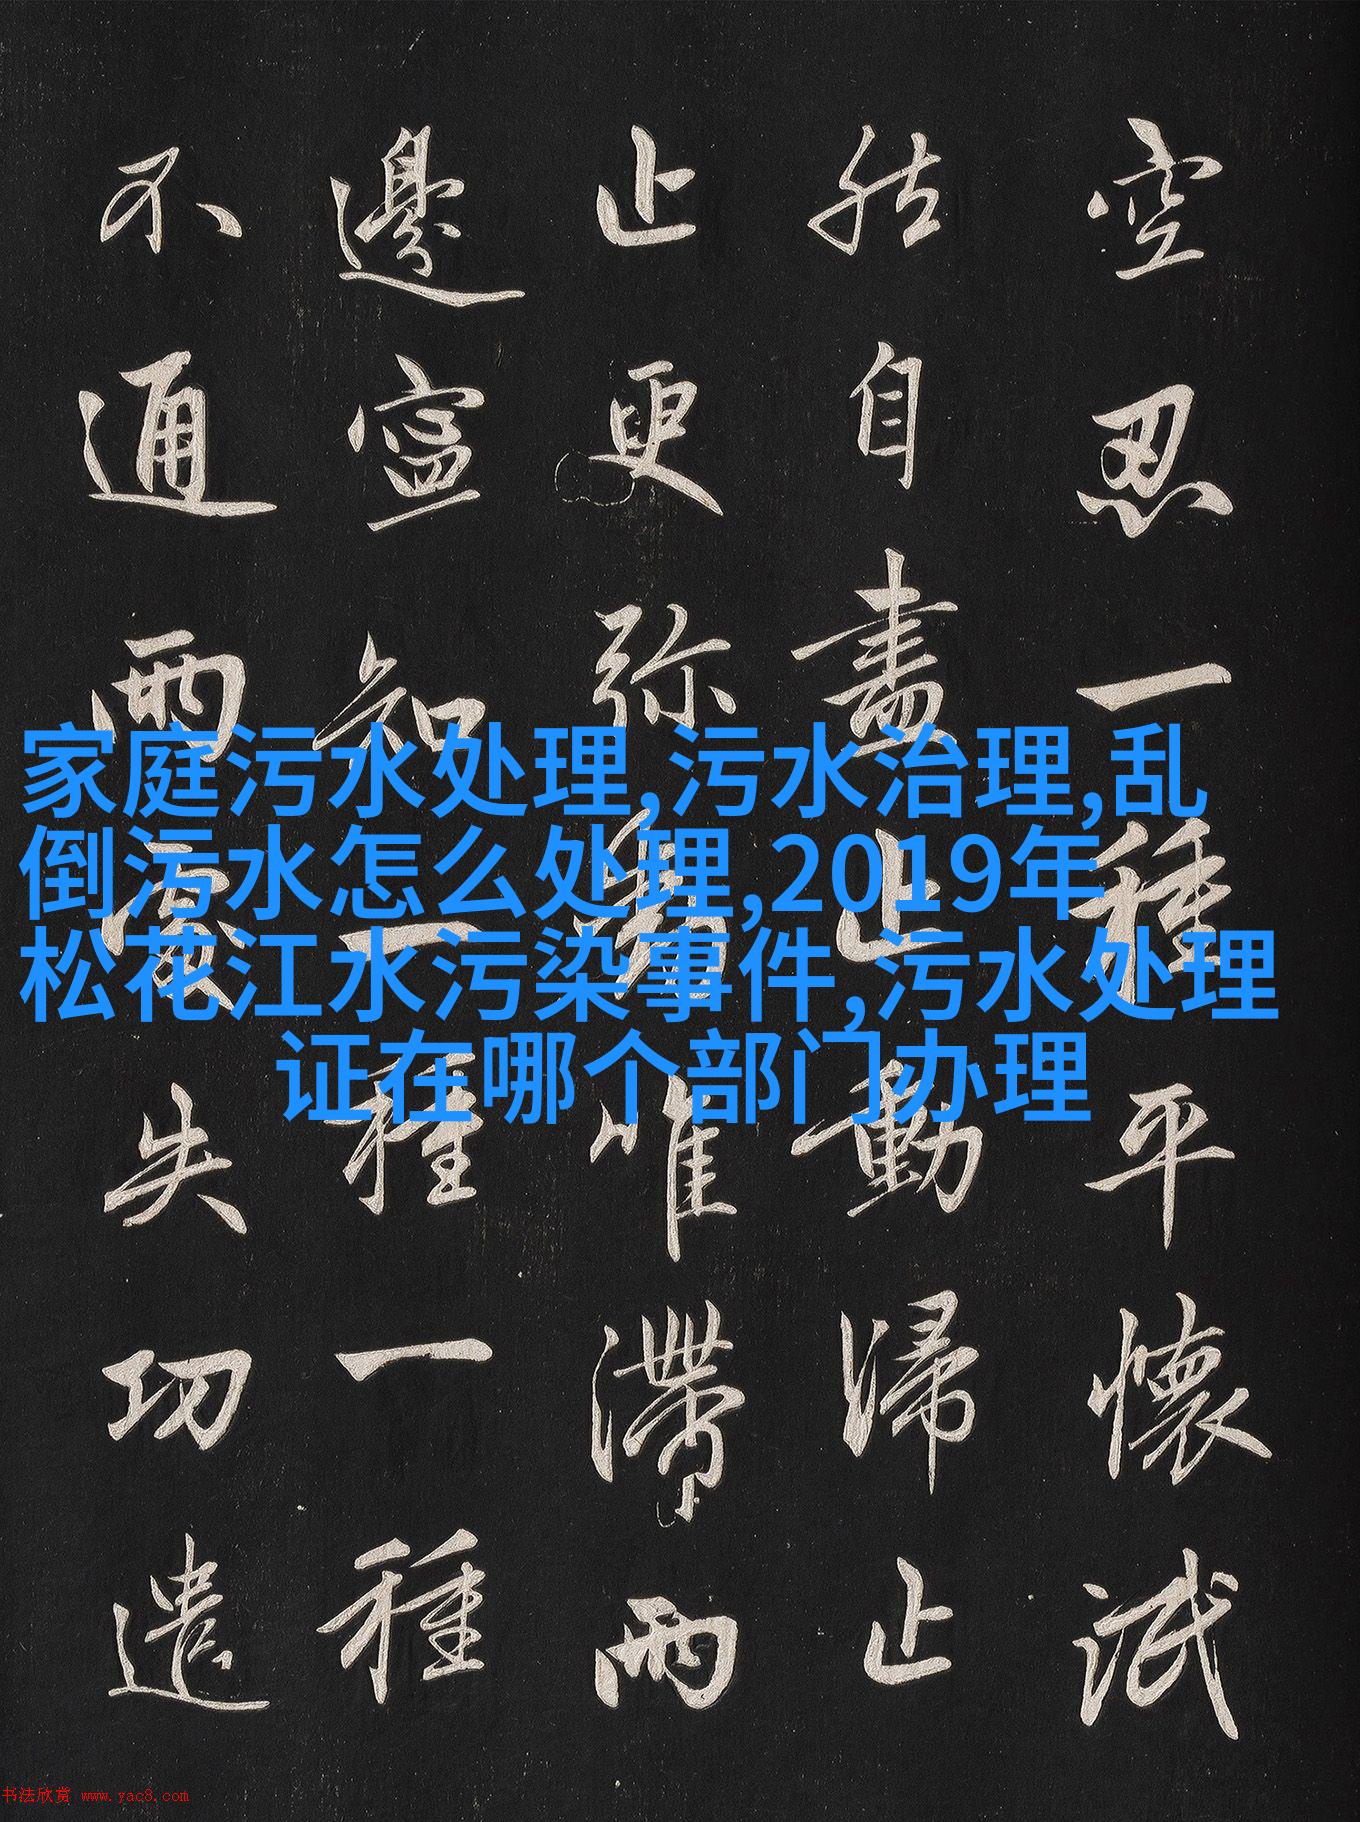 空忍一種平懷泯
然自盡止動歸止
止更弥動唯滯兩
邊寧知一種一種
不通兩處失功遣
家庭污水处理,污水治理,乱
倒污水怎么处理,2019年
松花江水污染事件,污水处理
证在哪个部门办理
书法欣赏 www.yac8.com